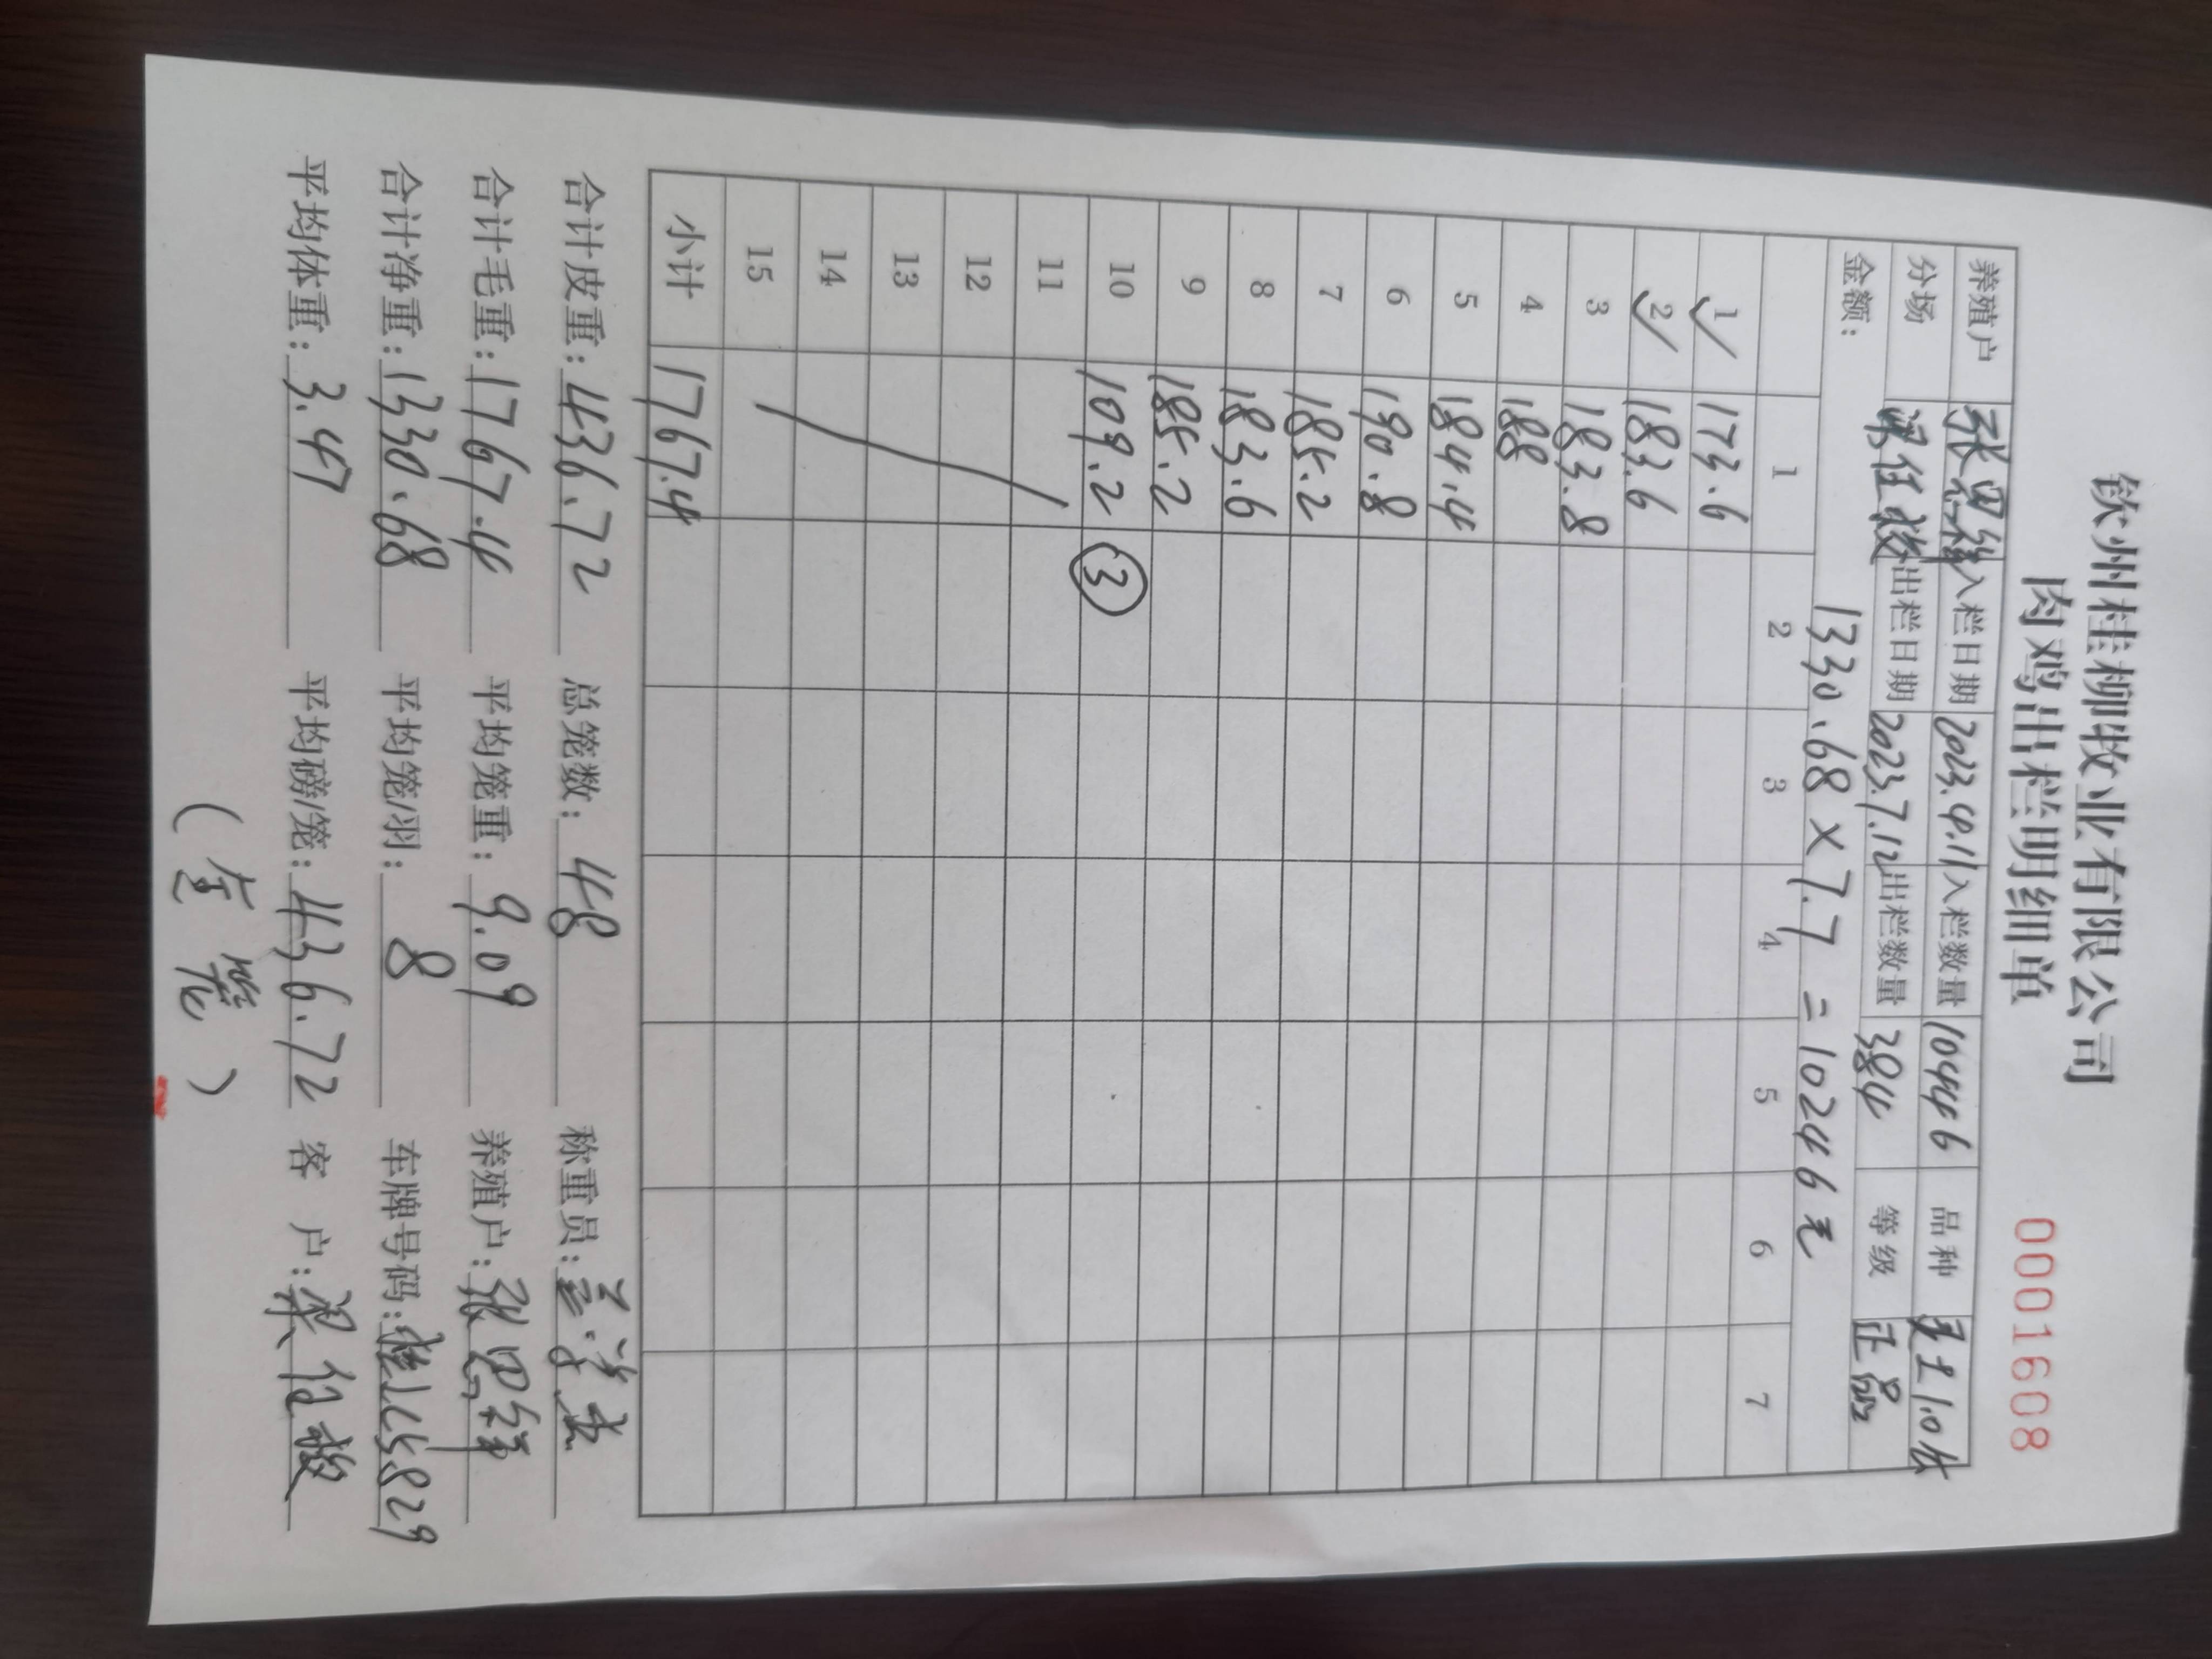 钦州桂柳牧业有限公司
肉鸡出栏明细单
0001608
养殖户 张思维 入栏日期 2023.4.11 入栏数量 10446 品种 土1.0公
分场 梁任 出栏日期 2023.7.12 出栏数量 384 等级 正品
金额： 1330.68×7.7=10246元
1 2 3 4 5 6 7
1 173.6
2 183.6
3 183.8
4 188
5 184.4
6 190.8
7 185.2
8 183.6
9 185.2
10 109.2 ③
11
12
13
14
15
小计 1767.4
合计皮重：436.72 总笼数：48 称重员：
合计毛重：1767.4 平均笼重：9.09 养殖户：张思维
合计净重：1330.68 平均笼/羽：8 车牌号码：桂LC5829
平均体重：3.47 平均磅/笼：436.72 客 户：梁任
（空笼）